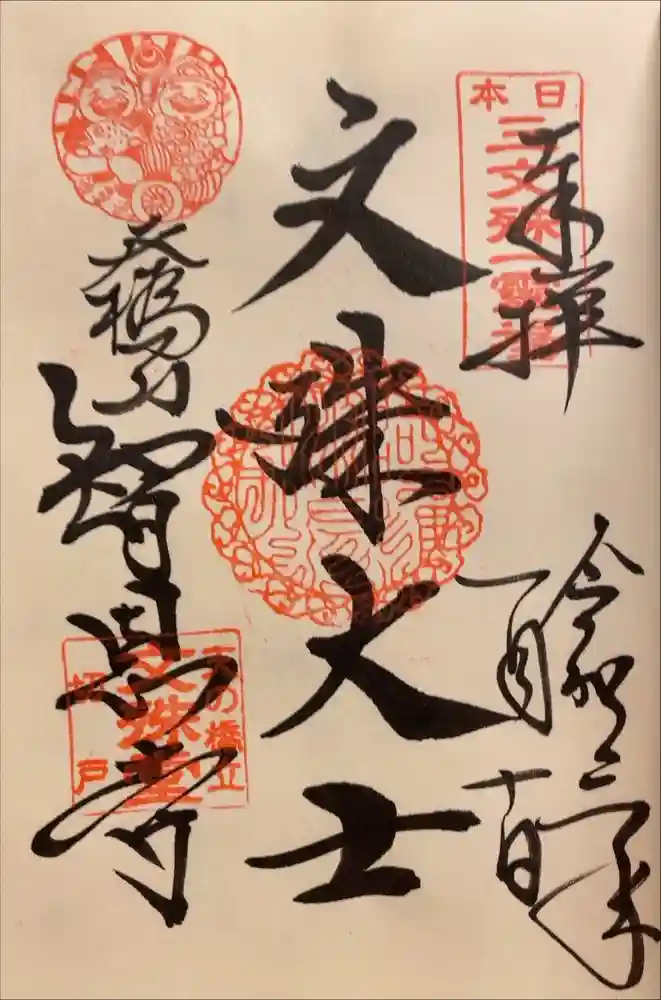 日本
三文殊一霊場
奉拝
令和二年
一月十日
文殊大士
天橋山
智恩寺
天の橋立
文殊堂
切戸